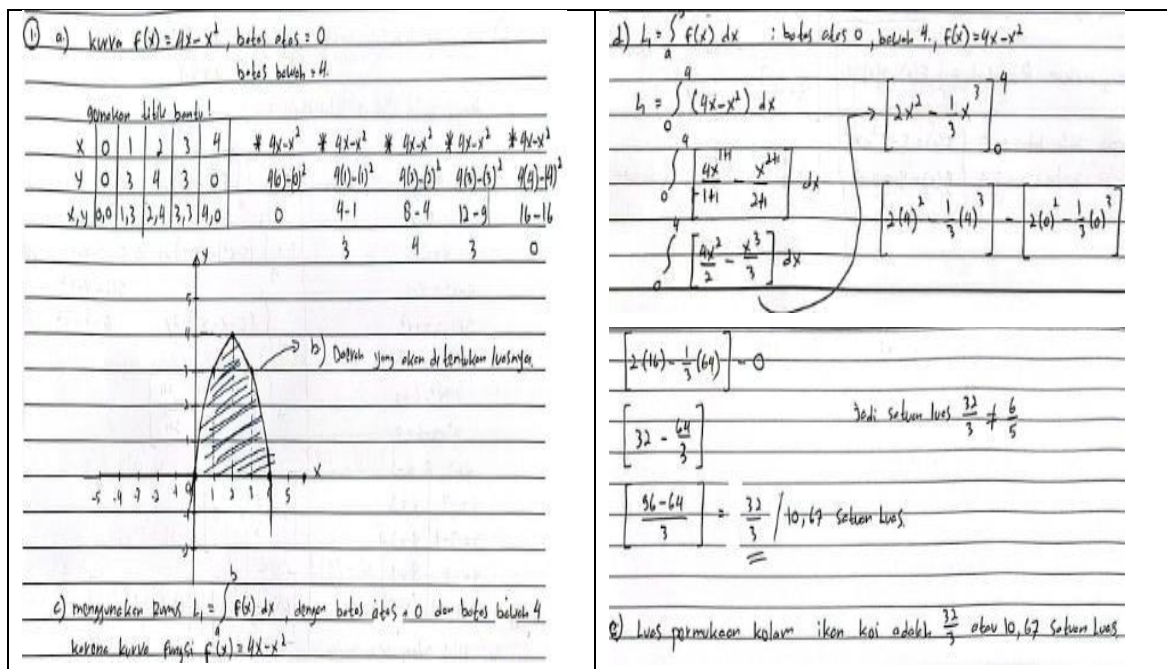 ① a.) kurva f(x) = 4x-x², batas atas = 0
batas bawah = 4.
gunakan titik bantu!
x | 0 | 1 | 2 | 3 | 4
y | 0 | 3 | 4 | 3 | 0
x,y | 0,0 | 1,3 | 2,4 | 3,3 | 4,0
* 4x-x² * 4x-x² * 4x-x² * 4x-x² * 4x-x²
4(0)-(0)² 4(1)-(1)² 4(2)-(2)² 4(3)-(3)² 4(4)-(4)²
0 4-1 8-4 12-9 16-16
3 4 3 0
y
5
4
3
2
1
-5 -4 -3 -2 -1 0 1 2 3 4 5 x
→ b) Daerah yang akan ditentukan luasnya
c) menggunakan rumus L = ∫ₐᵇ f(x) dx, dengan batas atas = 0 dan batas bawah 4
karena kurva fungsi f(x) = 4x-x²
d) L = ∫ₐᵇ f(x) dx : batas atas 0, bawah 4., f(x) = 4x-x²
L = ∫₀⁴ (4x-x²) dx
∫₀⁴ [4x¹⁺¹/1+1 - x²⁺¹/2+1] dx
∫₀⁴ [4x²/2 - x³/3] dx
→ [2x² - 1/3 x³]₀⁴
[2(4)² - 1/3 (4)³] - [2(0)² - 1/3 (0)³]
[2(16) - 1/3 (64)] - 0
[32 - 64/3]
[96-64/3] = 32/3 / 10,67 satuan luas.
Jadi satuan luas 32/3 ≠ 6/5
e) Luas permukaan kolam ikan koi adalah 32/3 atau 10,67 satuan luas